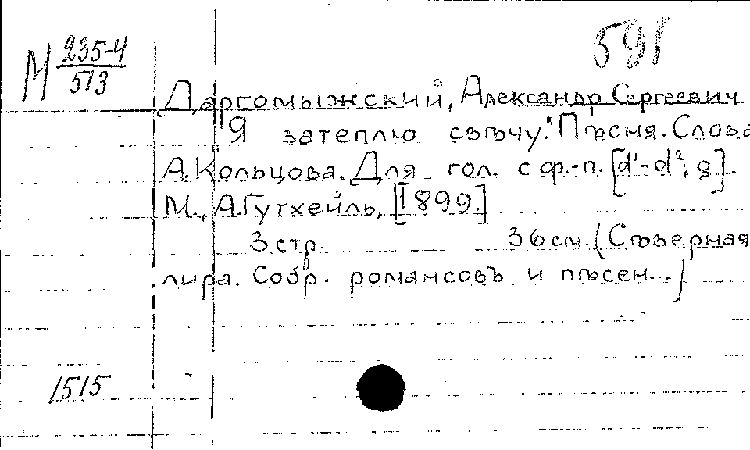 591
М 235-4
513
Даргомыжский, Александр Сергеевич
"Я затеплю свѣчу." Пѣсня. Слова
А. Кольцова. Для гол. с ф.-п. [d¹-d², g].
М., А. Гутхейль, [1899]
3 стр. 36 см. (Сѣверная
лира. Собр. романсовъ и пѣсен...)
1515